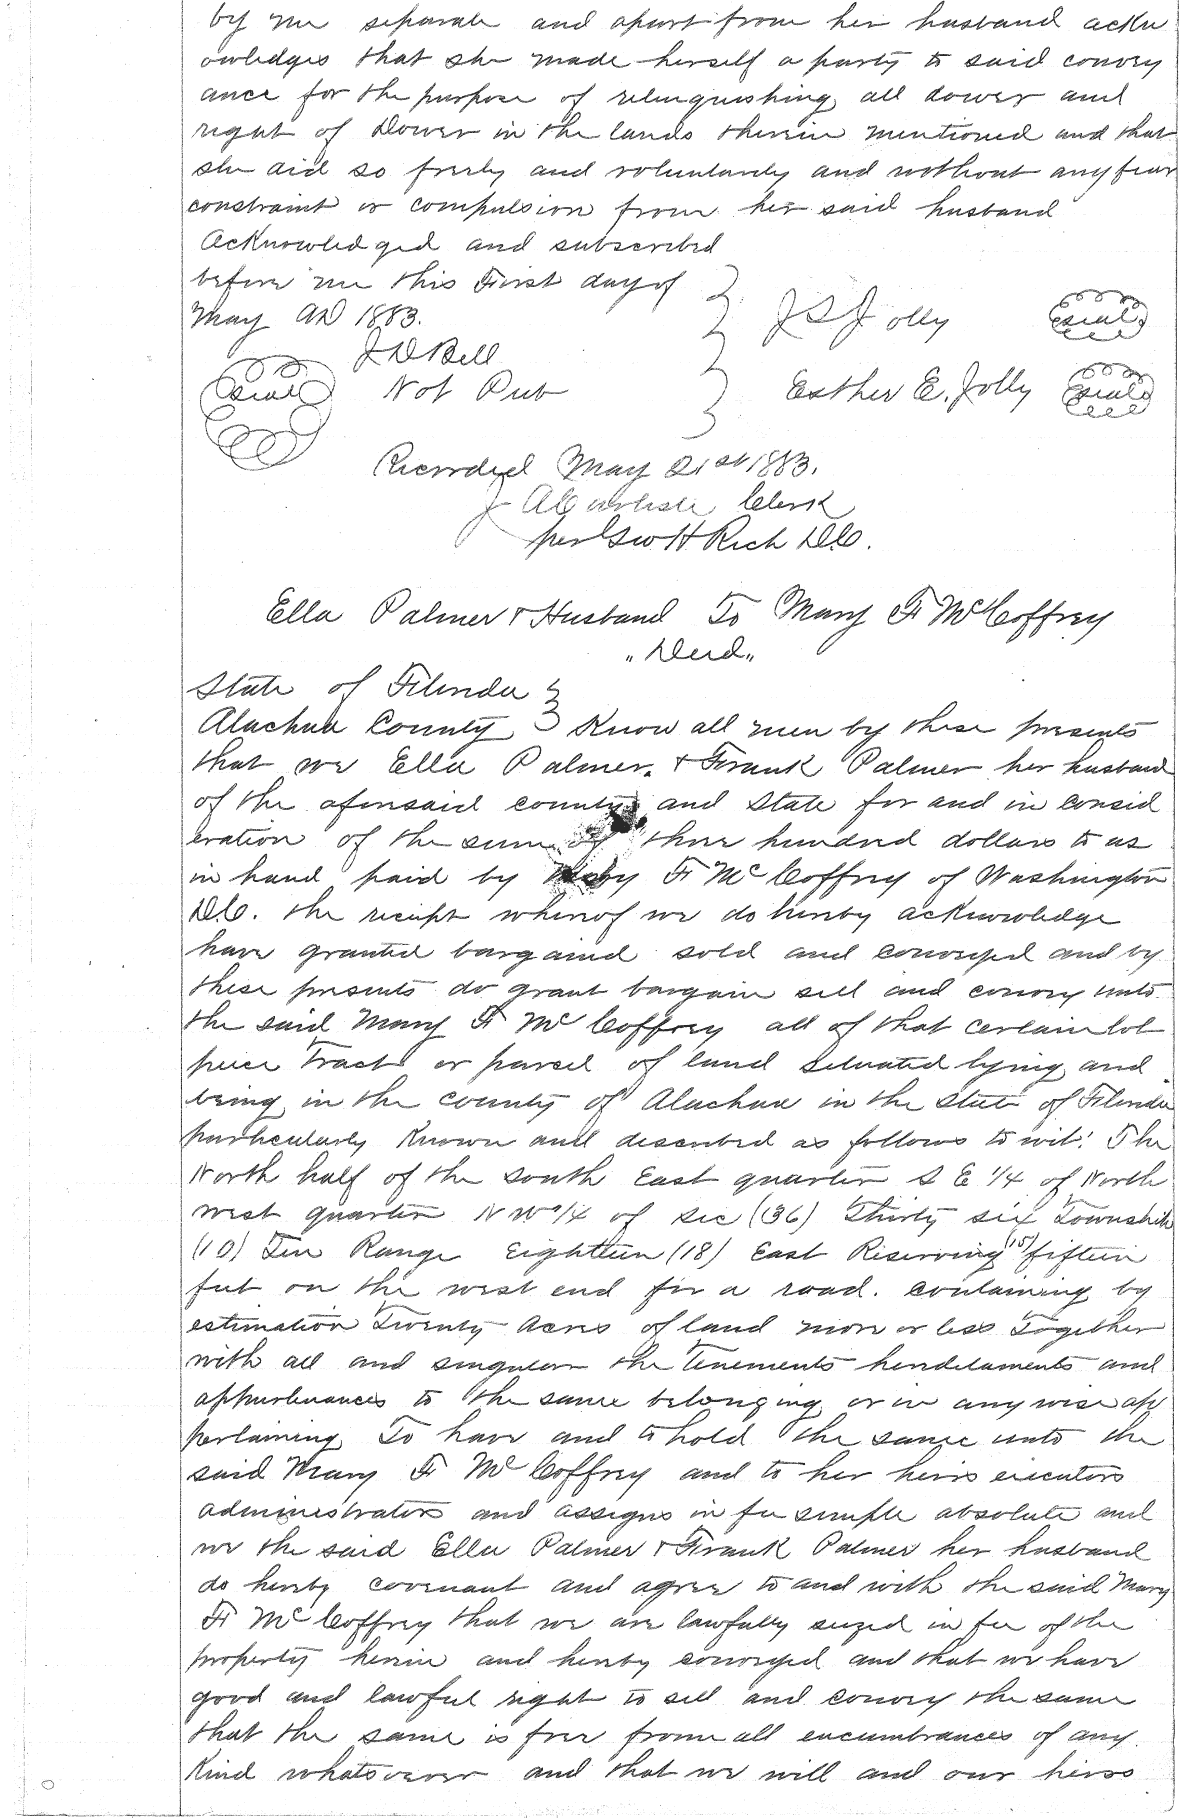 by me separate and apart from her husband ackn
owledges that she made herself a party to said convey
ance for the purpose of relinquishing all dower and
right of Dower in the lands therein mentioned and that
she did so freely and voluntarily and without any fear
constraint or compulsion from her said husband
Acknowledged and subscribed
before me this First day of
May AD 1883.
J S Jolly
Seal
J D Bell
Seal
Not Pub
Esther E. Jolly
Seal
Recorded May 21st 1883.
J A Carlisle Clerk
per Geo H Rich D.C.
Ella Palmer & Husband To Mary F McCoffrey
"Deed"
State of Florida
Alachua County Know all men by these presents
that we Ella Palmer. & Frank Palmer her husband
of the aforesaid county and State for and in consid
eration of the sum of three hundred dollars to us
in hand paid by Mary F McCoffrey of Washington
D.C. the receipt whereof we do hereby acknowledge
have granted bargained sold and conveyed and by
these presents do grant bargain sell and convey unto
the said Mary F McCoffrey all of that certain lot
piece Tract or parcel of land situated lying and
being in the county of Alachua in the State of Florida
particularly known and described as follows to wit: The
North half of the south East quarter S E 1/4 of North
west quarter N W 1/4 of sec (36) Thirty six Township
(10) Ten Range Eighteen (18) East Reserving (15) fifteen
feet on the west end for a road. containing by
estimation Twenty Acres of land more or less Together
with all and singular the tenements heriditaments and
appurtenances to the same belonging or in any wise ap
pertaining To have and to hold the same unto the
said Mary F McCoffrey and to her heirs executors
administrators and assigns in fee simple absolute and
we the said Ella Palmer & Frank Palmer her husband
do hereby covenant and agree to and with the said Mary
F McCoffrey that we are lawfully seized in fee of the
property herein and hereby conveyed and that we have
good and lawful right to sell and convey the same
that the same is free from all encumbrances of any
Kind whatsoever and that we will and our heirs